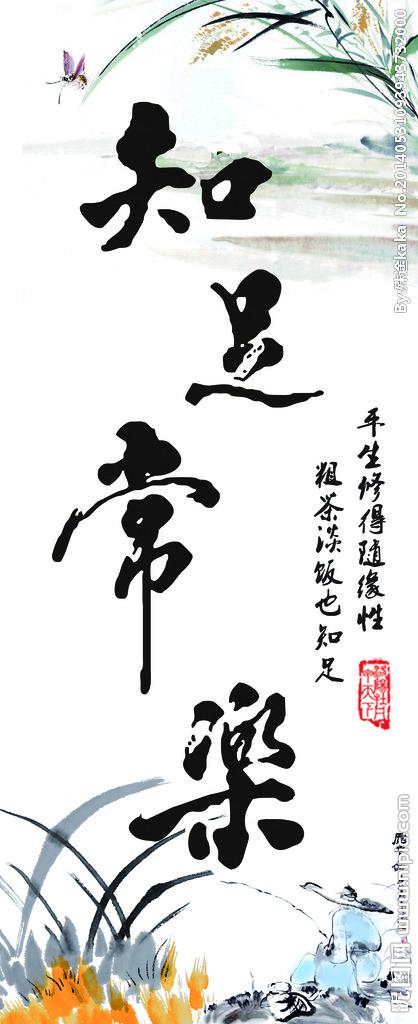 知足常樂
平生修得随缘性
粗茶淡饭也知足
By:殊淦kaka No.20140531093943732000
昵图网 www.nipic.com